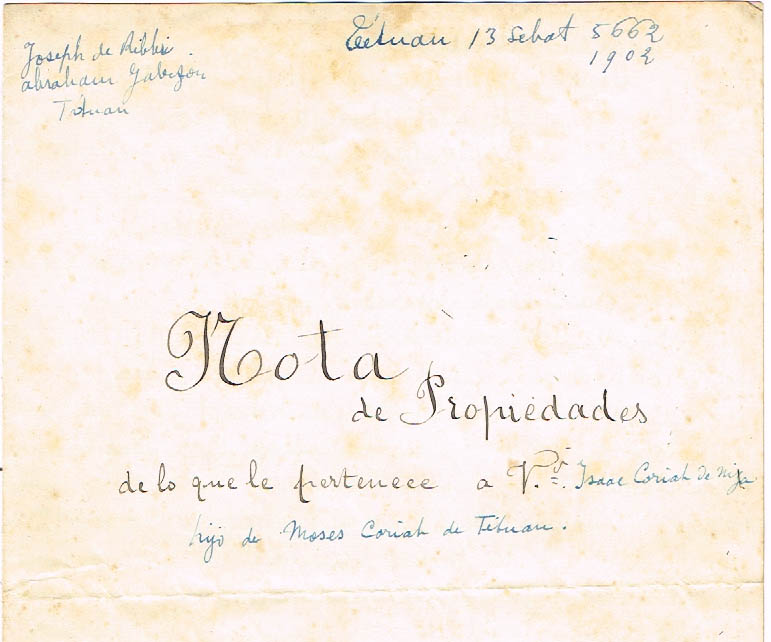 Joseph de Ribbi
abraham Gabizon
Tétuan
Tétuan 13 Sebat 5662
1902
Nota
de Propiedades
de lo que le pertenece a V.d. Isaac Coriat de Niza
hijo de Moses Coriat de Tétuan.